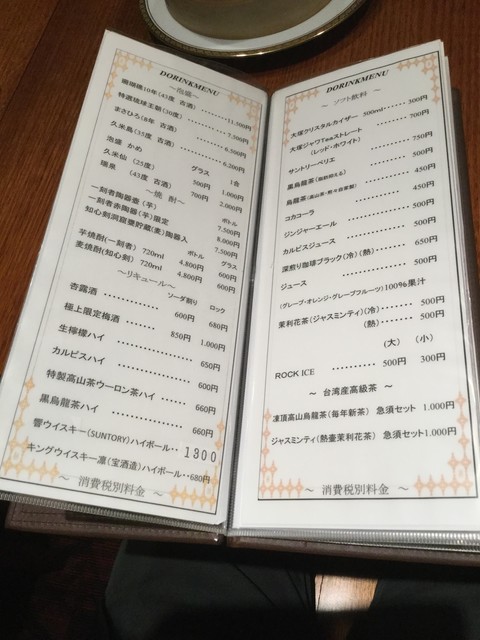 DORINKMENU
～泡盛～
瑞穂10年(43度 古酒) 11,500円
特選琉球王朝(30度) 7,500円
まさひろ(8年 古酒) 6,500円
久米島(35度 古酒) 6,200円
泡盛 かめ グラス 1合
久米仙 (25度) 500円 1,000円
瑞泉 (43度 古酒) 700円 2,000円
～焼 酎～
ボトル
一刻者陶器壷(芋) 7,500円
一刻者赤陶器(芋)限定 8,000円
知心剣洞窟甕貯蔵(麦)陶器入 7,500円
ボトル グラス
芋焼酎(一刻者) 720ml 4,800円 600円
麦焼酎(知心剣) 720ml 4,800円 600円
～リキュール～
ソーダ割り ロック
杏露酒 600円 680円
極上限定梅酒 850円 1,000円
生檸檬ハイ 650円
カルピスハイ 600円
特製高山茶ウーロン茶ハイ 660円
黒烏龍茶ハイ 660円
響ウイスキー(SUNTORY)ハイボール‥ 1800
キングウイスキー凛(宝酒造)ハイボール‥680円
～ 消費税別料金 ～
DORINKMENU
～ ソフト飲料 ～
大塚クリスタルカイザー 500ml 300円
大塚ジャワTeaストレート 700円
(レッド・ホワイト)
サントリーペリエ 750円
黒烏龍茶(脂肪抑える) 500円
烏龍茶(高山茶・煎れ自家製) 450円
コカコーラ 450円
ジンジャーエール 500円
カルピスジュース 500円
深煎り珈琲ブラック(冷)(熱) 650円
ジュース 500円
(グレープ・オレンジ・グレープフルーツ)100%果汁
茉利花茶(ジャスミンティ)(冷) 500円
(熱) 500円
(大) (小)
ROCK ICE 500円 300円
～ 台湾産高級茶 ～
凍頂高山烏龍茶(毎年新茶) 急須セット 1,000円
ジャスミンティ(熱壷茉利花茶) 急須セット1,000円
～ 消費税別料金 ～